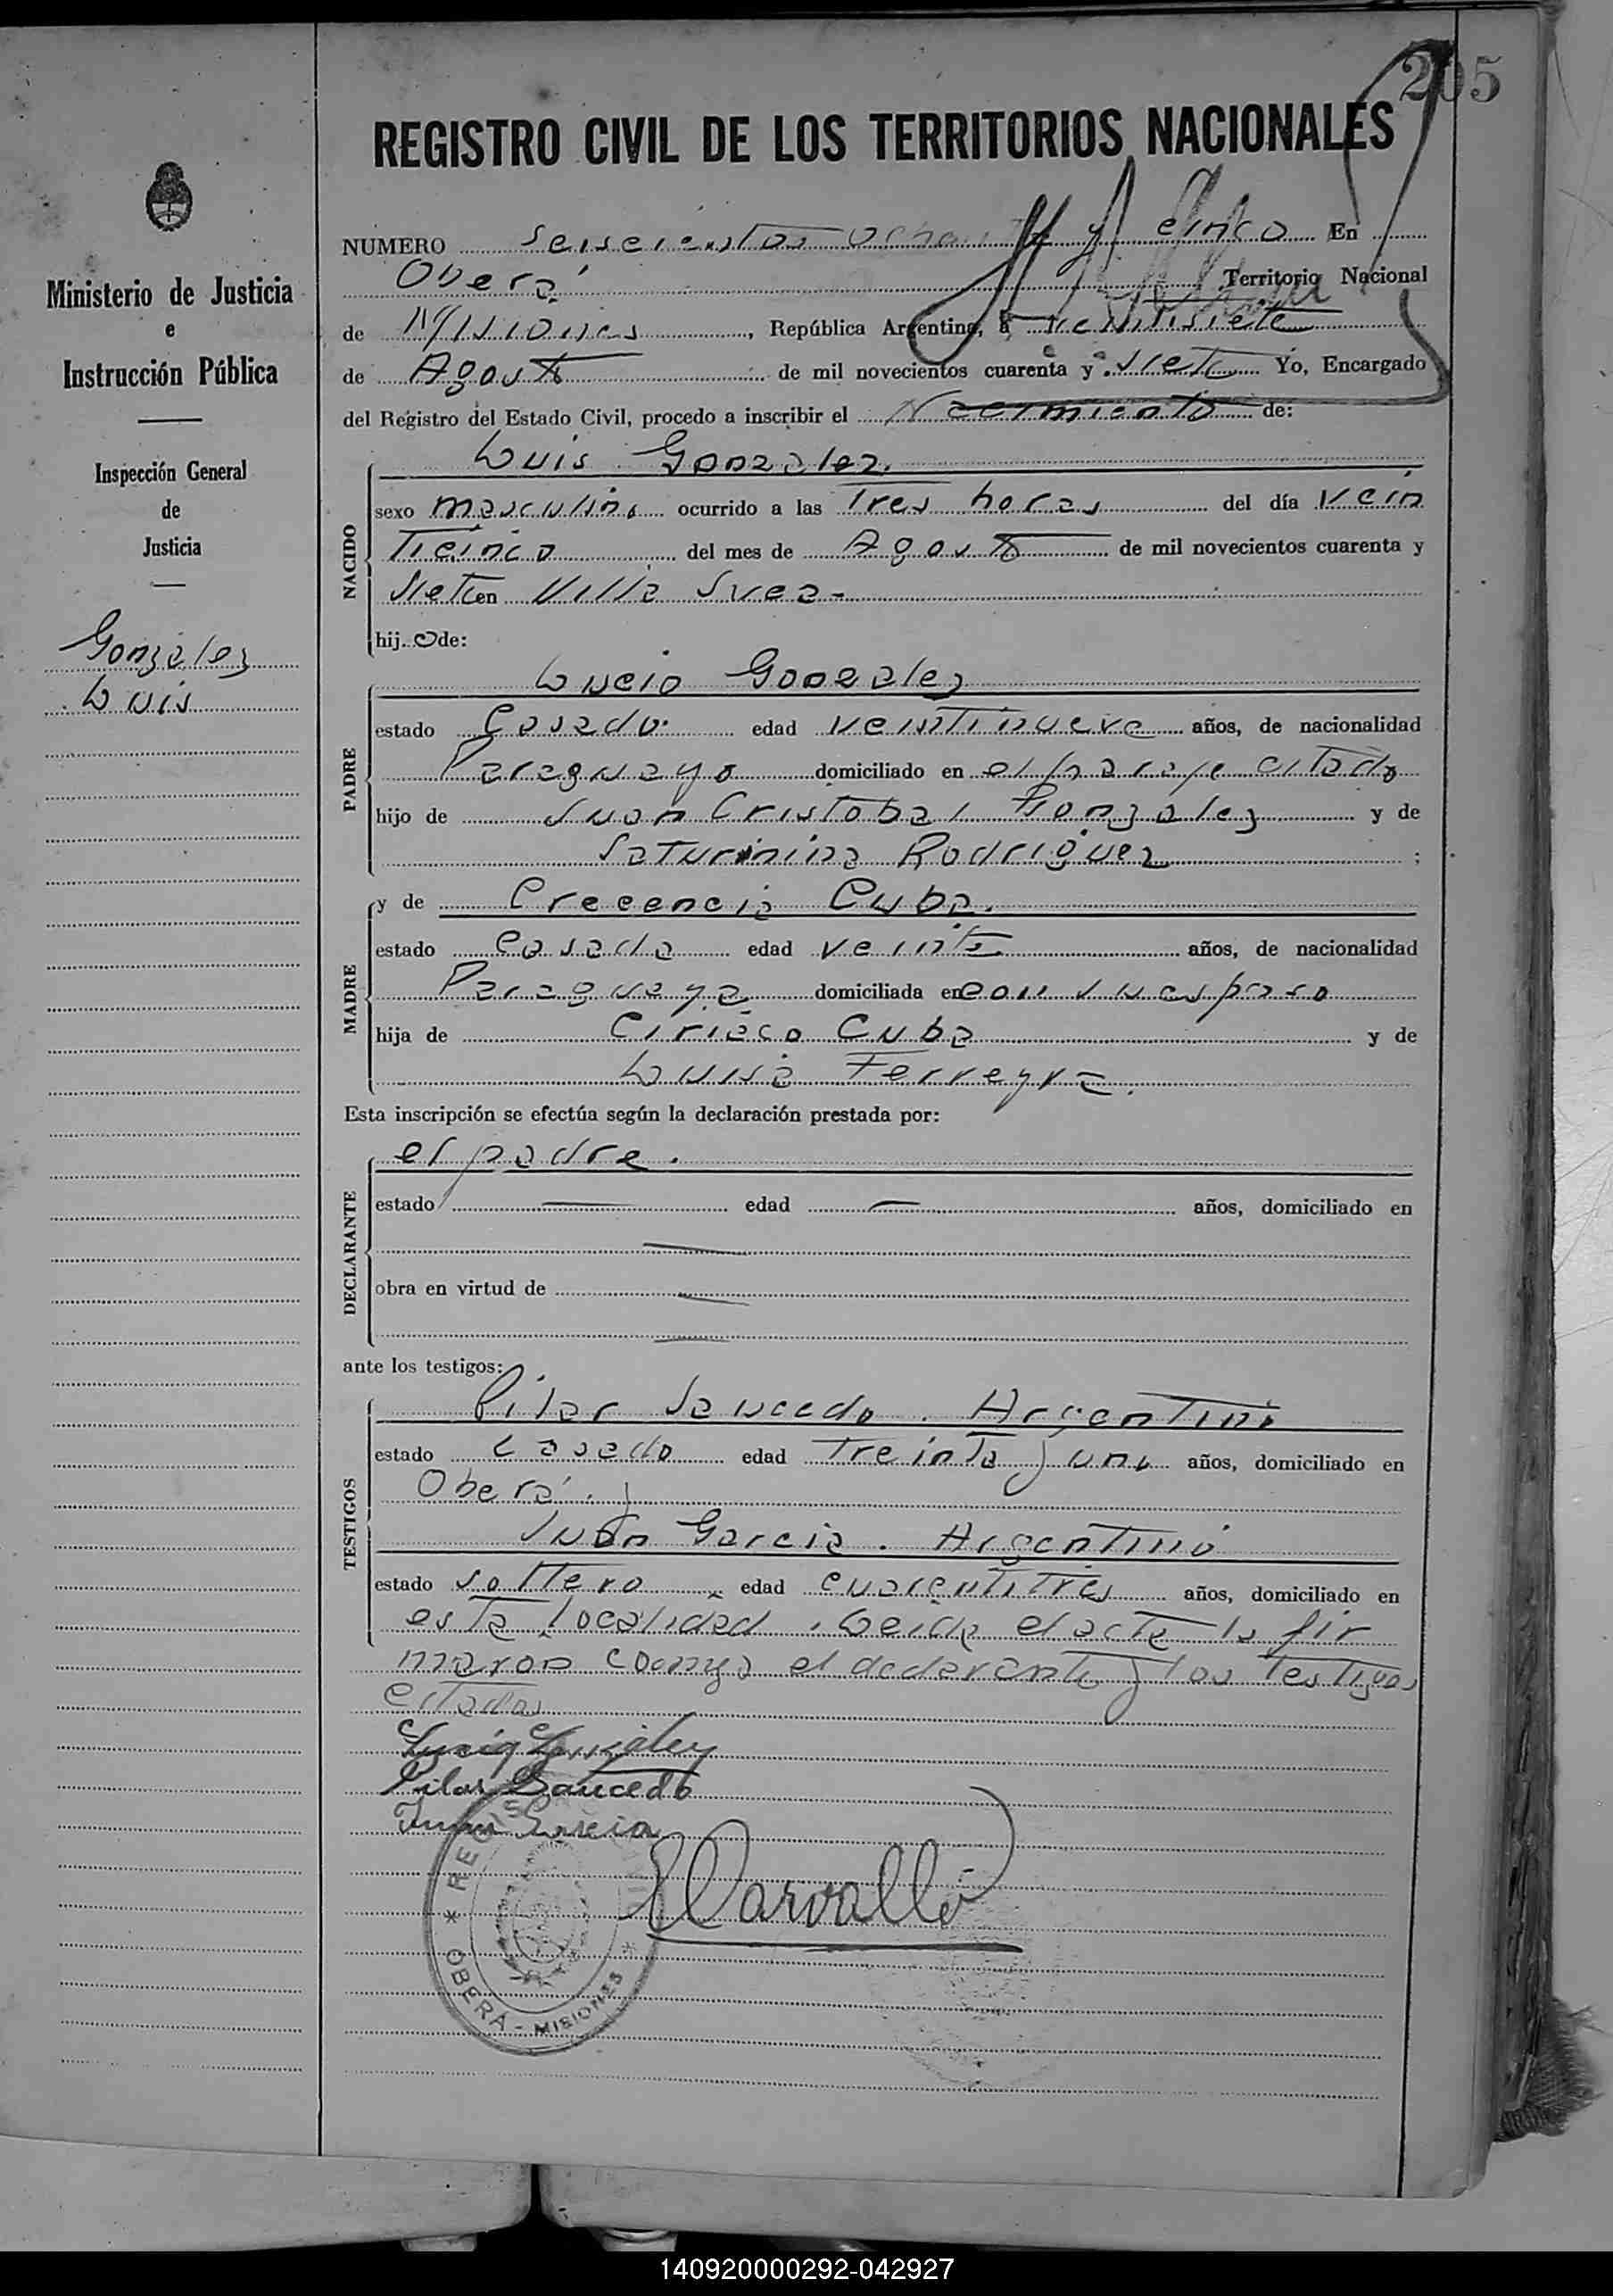 205
REGISTRO CIVIL DE LOS TERRITORIOS NACIONALES
NUMERO seiscientos ochenta y cinco En
Oberá Territorio Nacional
de Misiones, República Argentina, a veintisiete
de Agosto de mil novecientos cuarenta y siete Yo, Encargado
del Registro del Estado Civil, procedo a inscribir el Nacimiento de:
Ministerio de Justicia
e
Instrucción Pública
Inspección General
de
Justicia
Gonzalez
Luis
NACIDO
Luis Gonzalez.
sexo masculino ocurrido a las Tres horas del día vein
ticinco del mes de Agosto de mil novecientos cuarenta y
siete en Villa Svea-
hijo de:
PADRE
Lucio Gonzalez
estado Casado edad veintinueve años, de nacionalidad
Paraguayo domiciliado en el paraje citado
hijo de Juan Cristobal Gonzalez y de
Saturnina Rodriguez ;
MADRE
y de Crecencia Cuba.
estado Casada edad veinte años, de nacionalidad
Paraguaya domiciliada en con su esposo
hija de Ciriaco Cuba y de
Luisa Ferreyra.
Esta inscripción se efectúa según la declaración prestada por:
DECLARANTE
el padre.
estado — edad — años, domiciliado en
—
obra en virtud de —
—
ante los testigos:
TESTIGOS
Pilar Saucedo. Argentino
estado casado edad treinta y uno años, domiciliado en
Oberá. y
Juan Garcia. Argentino
estado soltero edad cuarentitres años, domiciliado en
esta localidad. Leida el acta la fir
maron conmigo el declarante y los testigos
citados
Lucio Gonzalez
Pilar Saucedo
Juan Garcia
Carvallo
* OBERÁ - MISIONES *
140920000292-042927